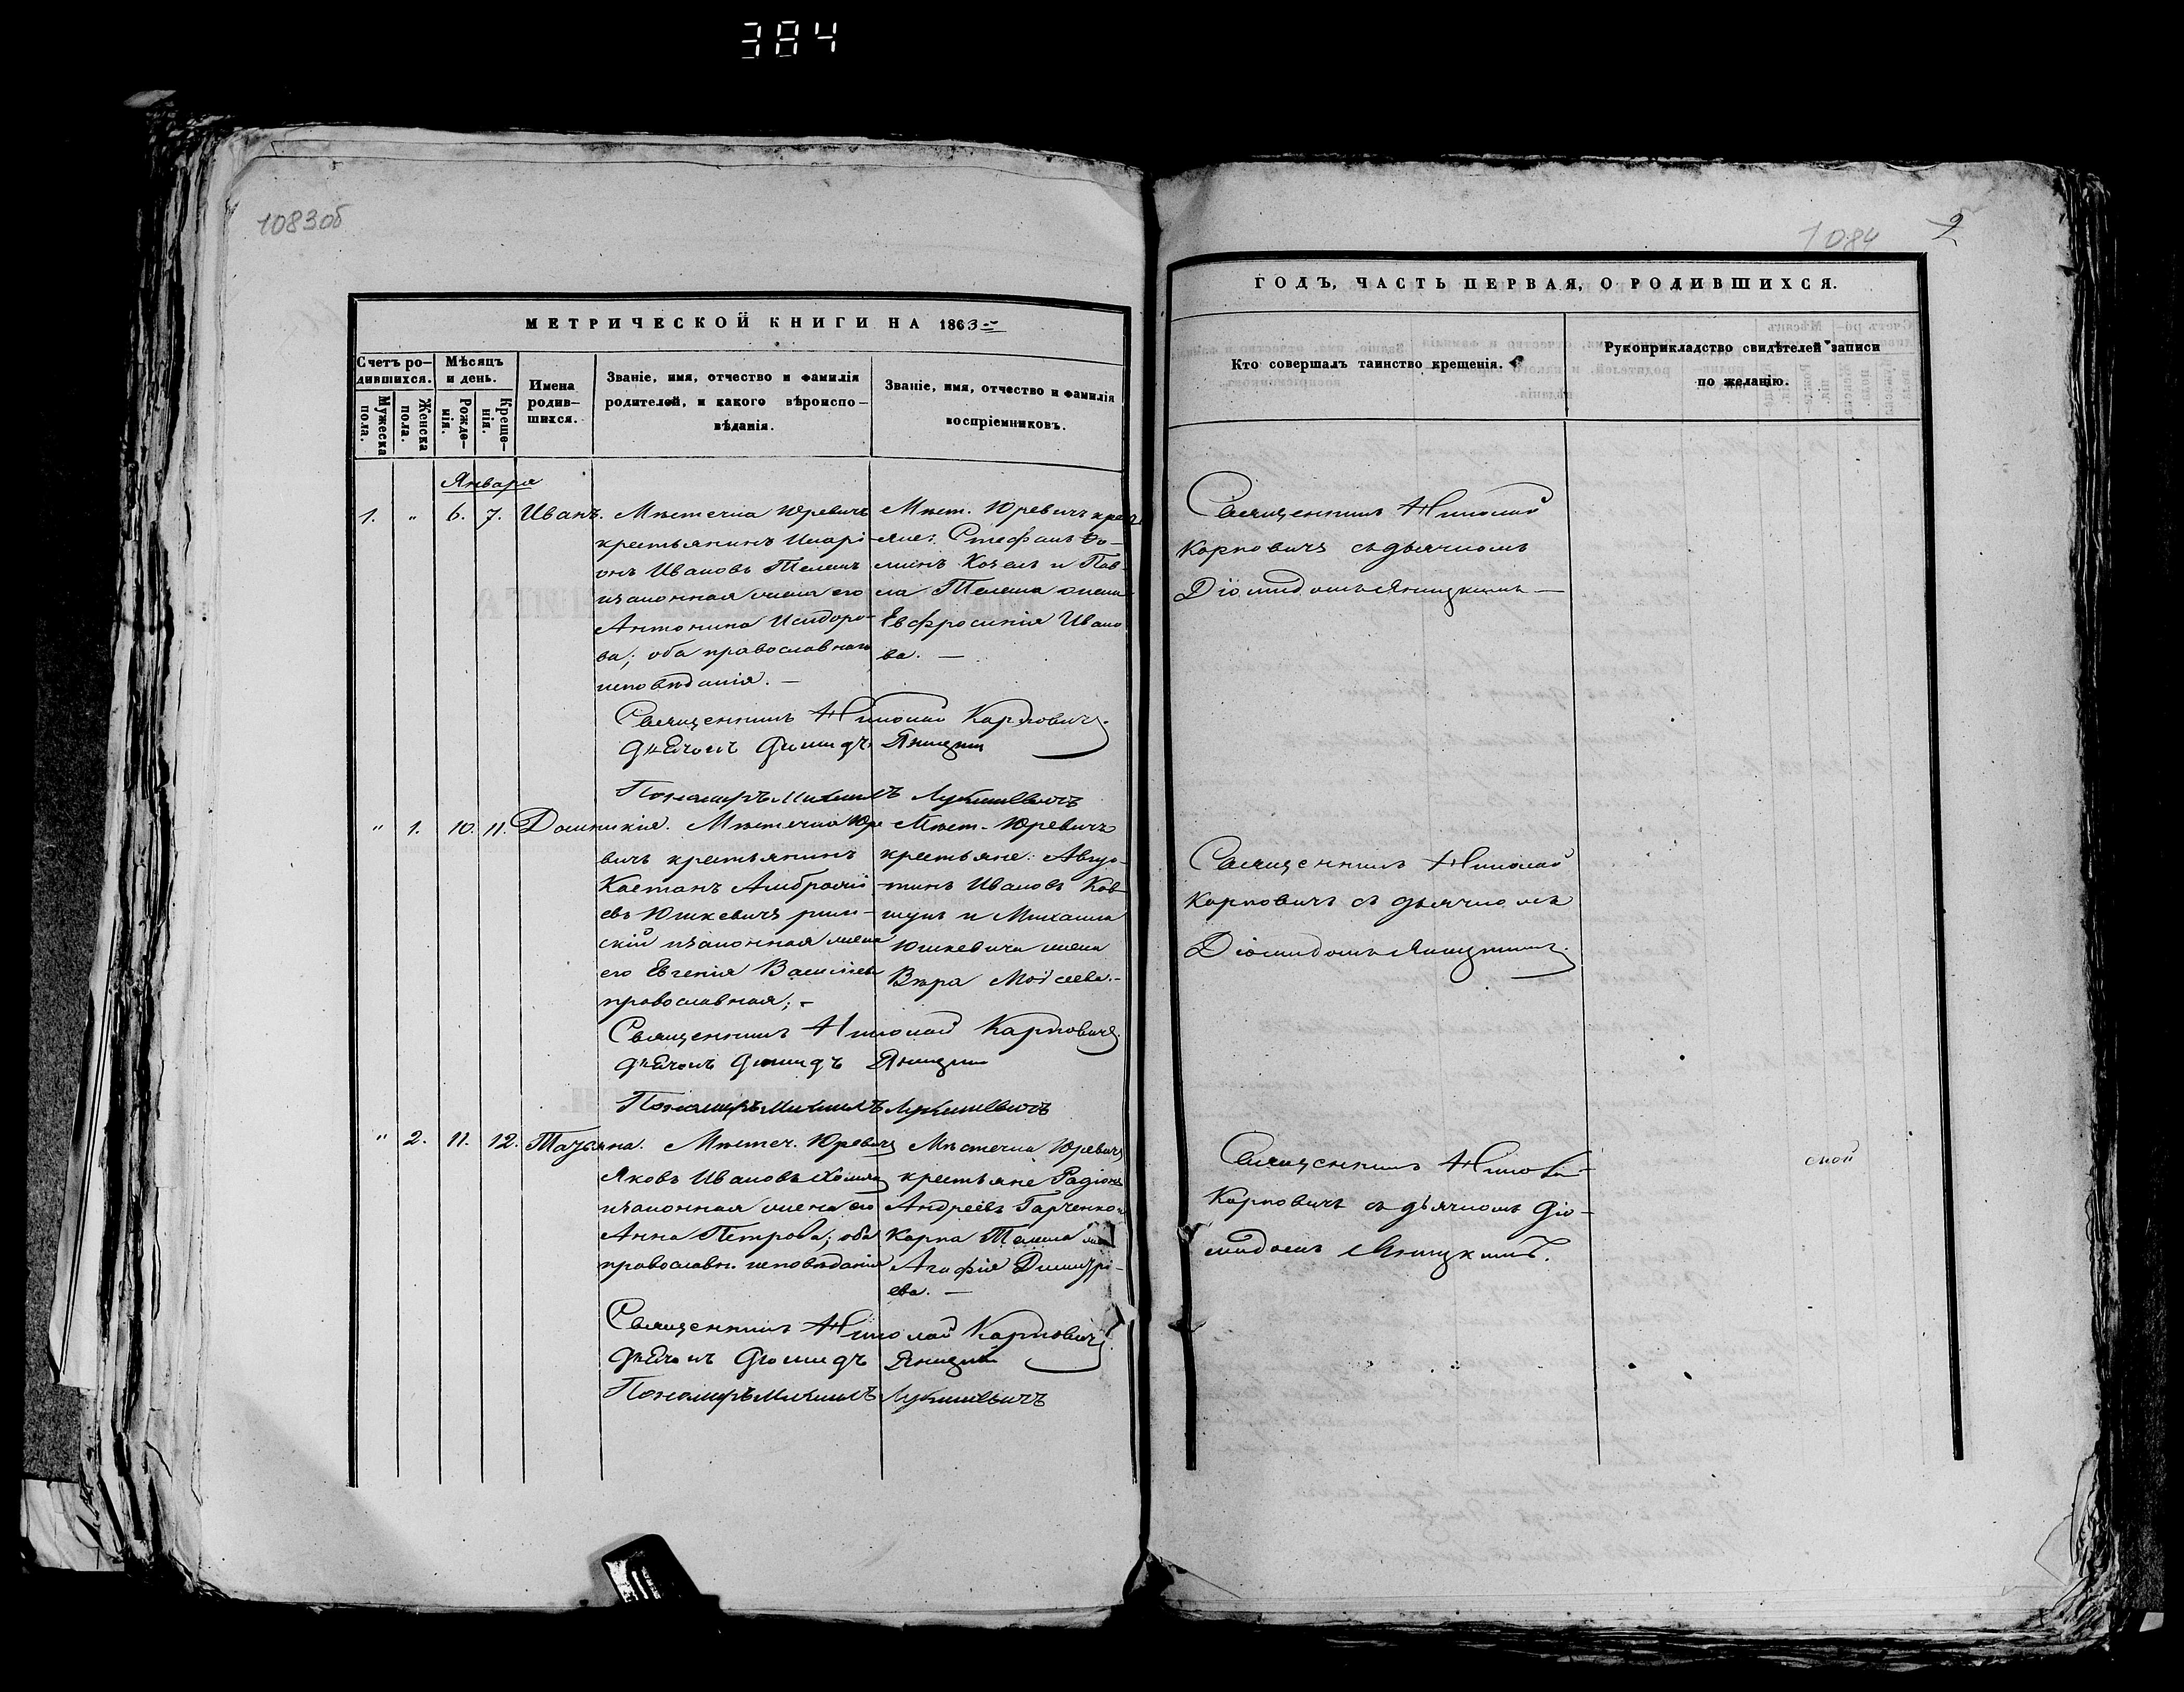 384
1083об
МЕТРИЧЕСКОЙ КНИГИ НА 1863
Счетъ ро-
дившихся.
Мѣсяцъ
и день.
Мужеска
пола.
Женска
пола.
Рожде-
нія.
Креще-
нія.
Имена
родив-
шихся.
Званіе, имя, отчество и фамилія
родителей, и какого вѣроиспо-
вѣданія.
Званіе, имя, отчество и фамилія
воспріемниковъ.
Января
1. " 6. 7. Иванъ.
Мѣстечка Юревичъ
крестьянинъ Иларі-
онъ Ивановъ Телешъ
и законная жена его
Антонина Исидоро-
ва; оба православнаго
исповѣданія. —
Мѣст. Юревичъ
Стефанъ Фо-
минъ Козелъ и Пав-
ла Телеша жена
Евфросинія Ивано
ва. —
Священникъ Николай Карповичъ
Дьячокъ Діомидъ Яницкій
Пономарь Михаилъ
" 1. 10. 11. Домникія.
Мѣстечка Юре
вичъ крестьянинъ
Каетанъ Амбросіе
въ Юшкевичъ рим-
скій и законная жена
его Евгенія Василіева
православная; -
Мѣст. Юревичъ
крестьяне: Авгус-
тинъ Ивановъ Ков-
шунъ и Михаила
Юшкевича жена
Вѣра Моісеева. -
Священникъ Николай Карповичъ
Дьячокъ Діомидъ Яницкій
Пономарь Михаилъ
" 2. 11. 12. Татьяна.
Мѣстеч. Юревичъ
Яковъ Ивановъ
и законная жена его
Анна Петрова; оба
православн. исповѣданія
Мѣстечка Юревичъ
крестьяне Радіонъ
Андреевъ
Карпа Телеша
Агафія Димитрі-
ева. —
Священникъ Николай Карповичъ
Дьячокъ Діомидъ Яницкій
Пономарь Михаилъ
1084 2
ГОДЪ, ЧАСТЬ ПЕРВАЯ, О РОДИВШИХСЯ.
Кто совершалъ таинство крещенія.
Рукоприкладство свидѣтелей записи
по желанію.
Священникъ Николай
Карповичъ съ дьячкомъ
Діомидомъ Яницкимъ —
Священникъ Николай
Карповичъ съ дьячкомъ
Діомидомъ Яницкимъ.
Священникъ Николай
Карповичъ съ дьячкомъ Діо-
мидомъ Яницкимъ.